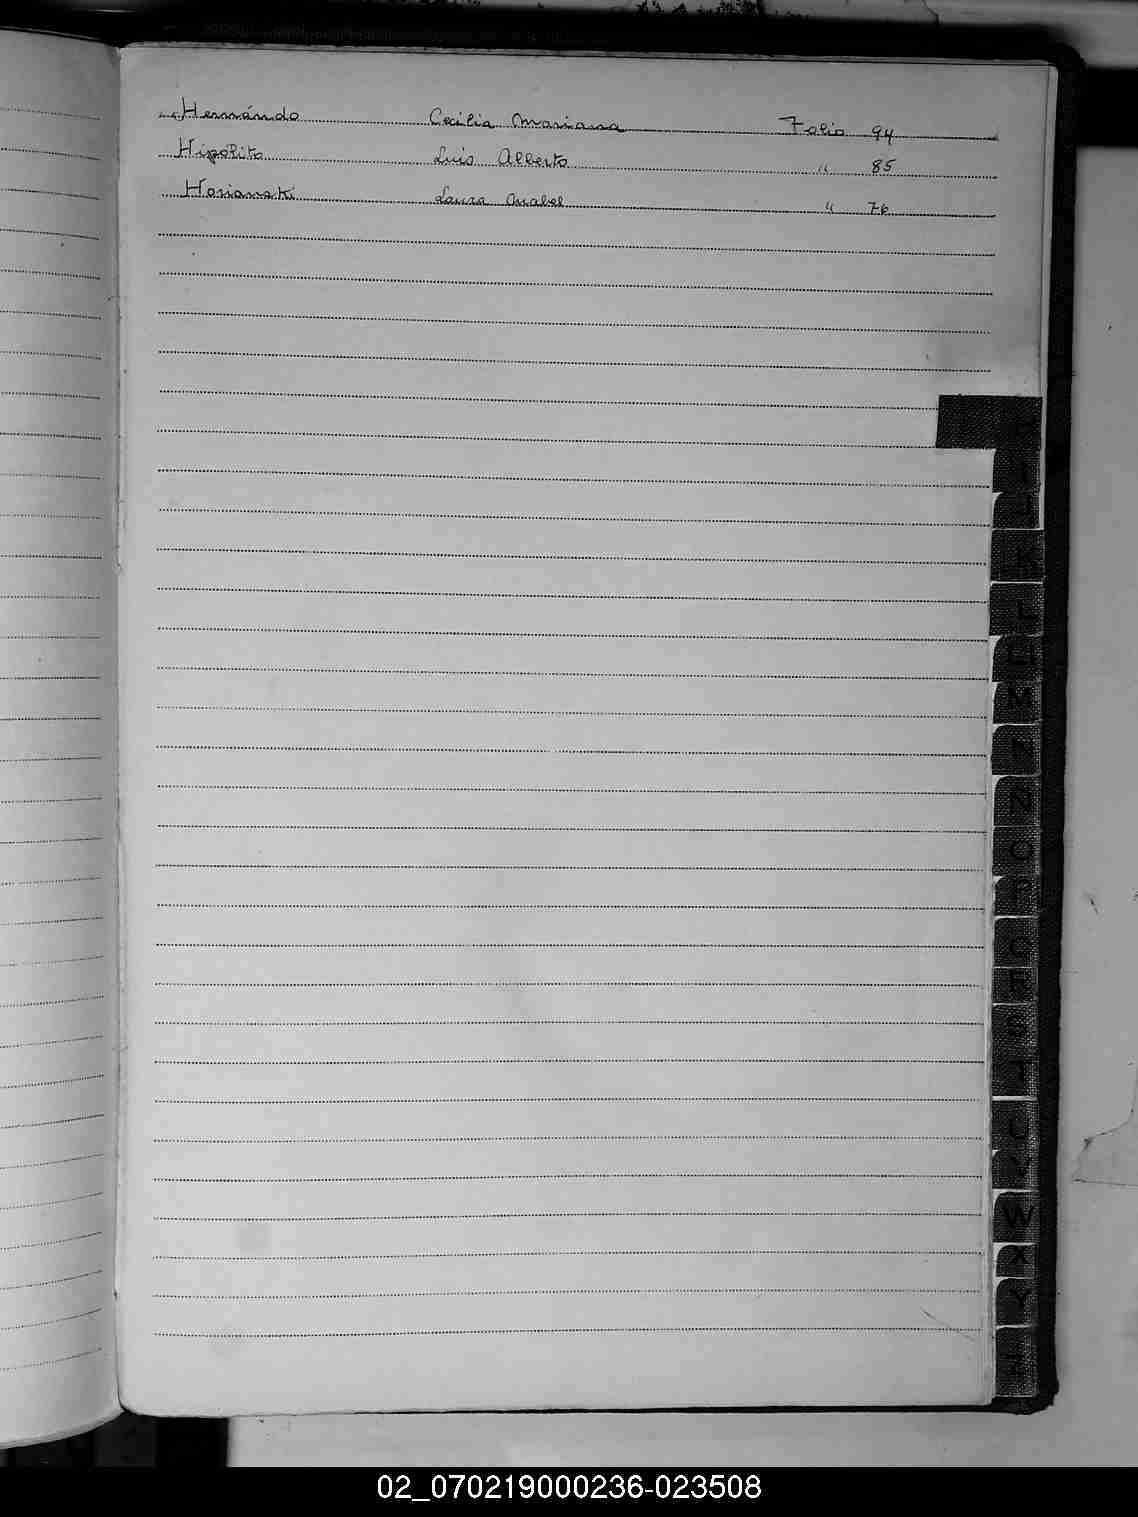 Hernándo Cecilia Mariana Folio 94
Hipólito Luis Alberto " 85
Horianski Laura Anabel " 76
H
I
J
K
L
LL
M
N
Ñ
O
P
Q
R
S
T
U
V
W
X
Y
Z
02_070219000236-023508